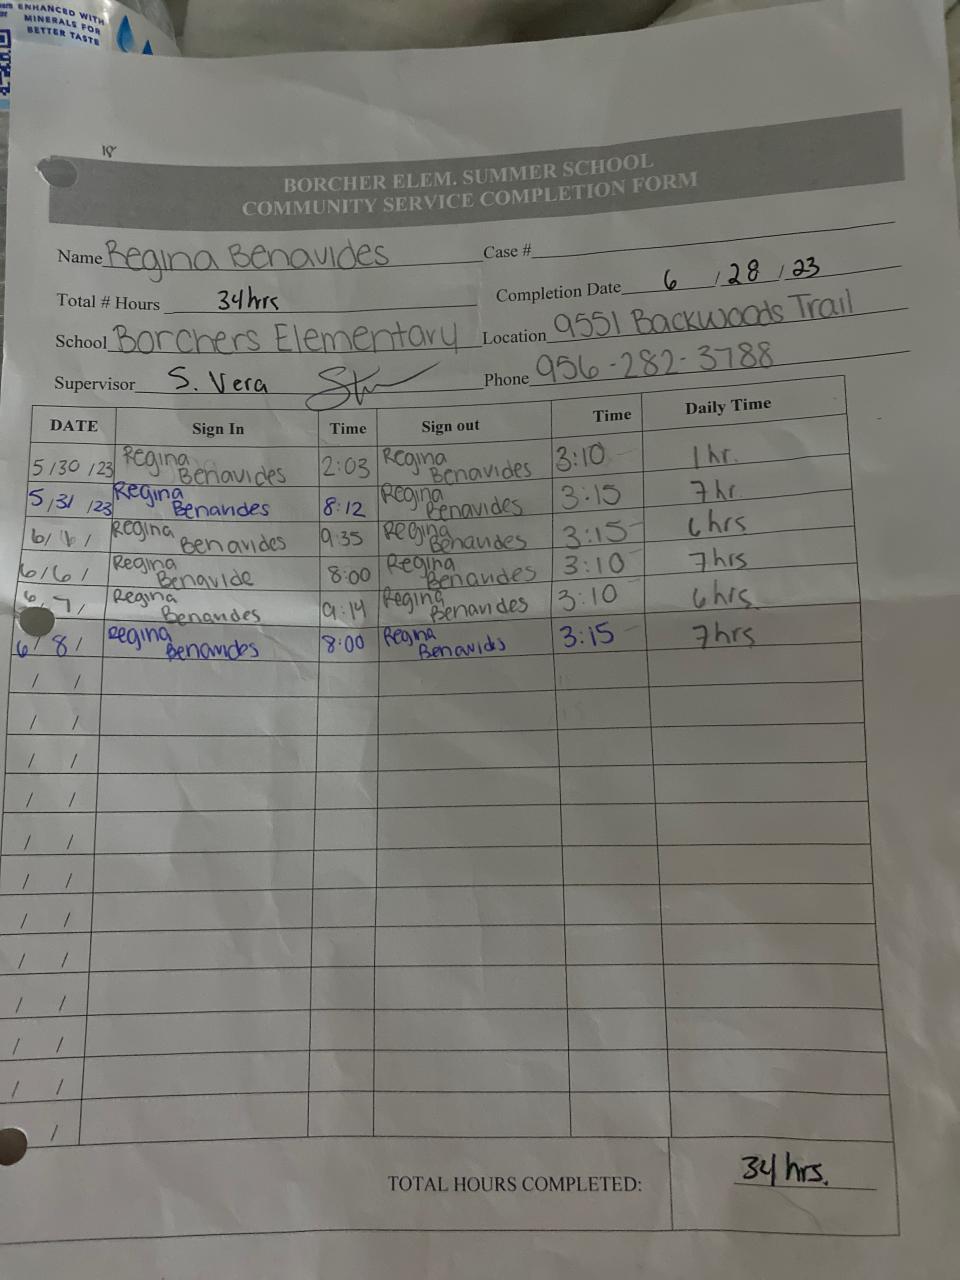 ENHANCED WITH
MINERALS FOR
BETTER TASTE
18
BORCHER ELEM. SUMMER SCHOOL
COMMUNITY SERVICE COMPLETION FORM
Name Regina Benavides Case #
Total # Hours 34hrs Completion Date 6 / 28 / 23
School Borchers Elementary Location 9551 Backwoods Trail
Supervisor S. Vera Phone 956-282-3788
DATE Sign In Time Sign out Time Daily Time
5/30/23 Regina Benavides 2:03 Regina Benavides 3:10 1hr.
5/31/23 Regina Benavides 8:12 Regina Benavides 3:15 7hr.
6/ / Regina Benavides 9:35 Regina Benavides 3:15 6hrs
6/6/ Regina Benavide 8:00 Regina Benavides 3:10 7hrs
6/7/ Regina Benavides 9:14 Regina Benavides 3:10 6hrs
6/8/ Regina Benavides 8:00 Regina Benavids 3:15 7hrs
/ /
/ /
/ /
/ /
/ /
/ /
/ /
/ /
/ /
/ /
/ /
/
TOTAL HOURS COMPLETED: 34 hrs.